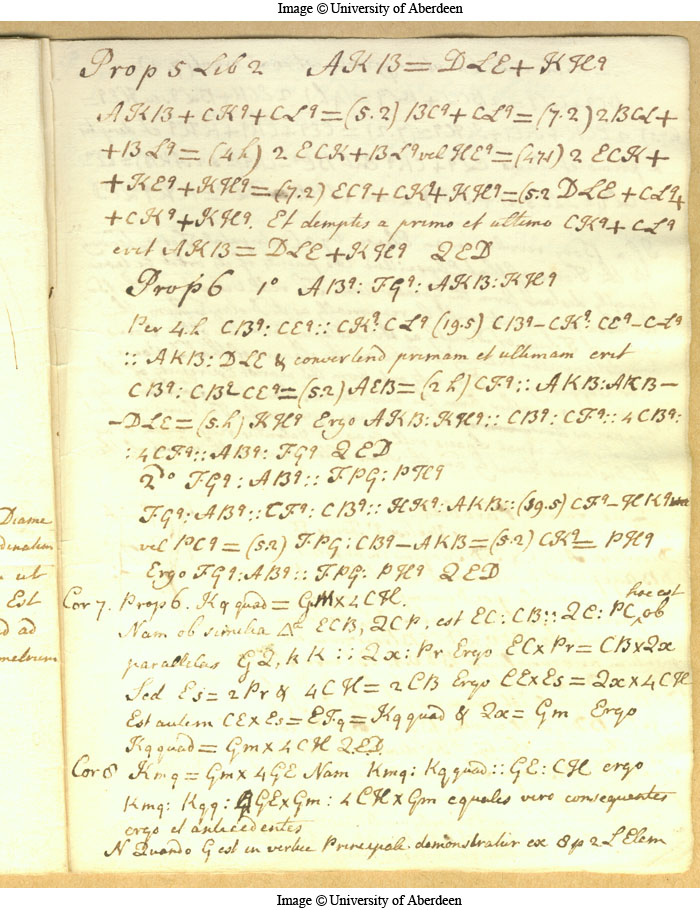 Image © University of Aberdeen
Prop 5 Lib 2 AKB = DLE + KHq
AKB + CKq + CLq = (5.2) BCq + CLq = (7.2) 2BCL +
+ BLq = (4h) 2 ECK + BLq vel HEq = (47.1) 2 ECK +
+ KEq + KHq = (7.2) ECq + CKq + KHq = (5.2 DLE + CLq +
+ CKq + KHq. Et demptis a primo et ultimo CKq + CLq
erit AKB = DLE + KHq QED
Prop 6 1o ABq: FGq: AKB: KHq
Per 4.h CBq: CEq:: CKq: CLq (19.5) CBq - CKq: CEq - CLq
:: AKB: DLE & convertend primam et ultimam erit
CBq: CBq CEq = (5.2) AEB = (2h) CFq:: AKB: AKB -
- DLE = (5.h) KHq Ergo AKB: KHq:: CBq: CFq:: 4CBq:
: 4CFq:: ABq: FGq QED
2do FGq: ABq:: FPG: PHq
FGq: ABq:: CFq: CBq:: HKq: AKB:: (19.5) CFq - HKq
vel PCq = (5.2) FPG: CBq - AKB = (5.2) CKq = PHq
Ergo FGq: ABq:: FPG: PHq QED
Diame
dinatim
ut
Est
d ad
metrum
Cor 7. Prop 6. Kq quad = Gm x 4CH. hoc est
Nam ob similia ECB, QCP, est EC: CB:: QC: PC, ob
parallelas GQ, kK:: Qx: Pr Ergo EC x Pr = CB x Qx
Sed Es = 2Pr & 4CH = 2CB Ergo CE x Es = Qx x 4CH
Est autem CE x Es = EFq = Kq quad & Qx = Gm Ergo
Kq quad = Gm x 4CH QED.
Cor 8 Kmq = Gm x 4GE Nam Kmq: Kq quad:: GE: CH ergo
Kmq: Kqq: 4GE x Gm: 4CH x Gm equales vero consequentes
ergo et antecedentes
N Quando G est in vertice Principale demonstratur ex 8 p 2 L Elem
Image © University of Aberdeen